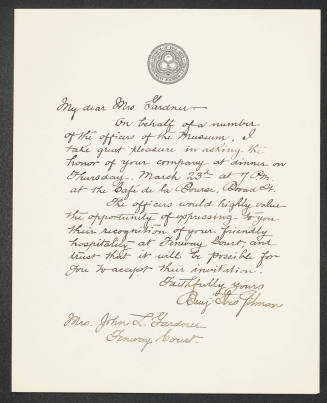 My dear Mrs. Gardner—
On behalf of a number
of the officers of the Museum, I
take great pleasure in asking the
honor of your company at dinner on
Thursday. March 23d at 7 P.M.
at the Café de la Bourse, Broad St.
The officers would highly value
the opportunity of expressing to you
their recognition of your friendly
hospitality at Fenway Court and
trust that it will be possible for
you to accept their invitation.
Faithfully yours
Benj. Ives Gilman
Mrs. John L. Gardner
Fenway Court.